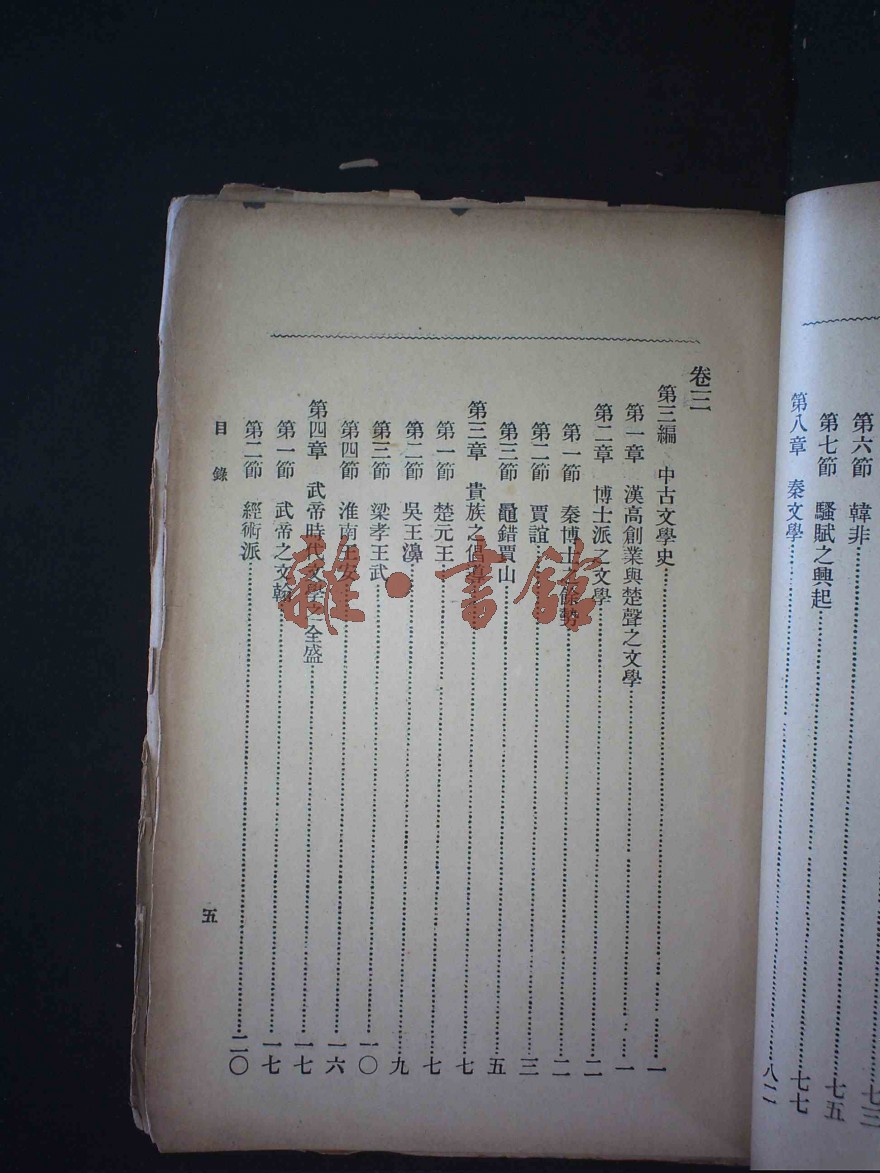 七三
第六節 韓非……七五
第七節 騷賦之興起……七七
第八章 秦文學……八二
卷三
第三編 中古文學史……一
第一章 漢高創業與楚聲之文學……一
第二章 博士派之文學……二
第一節 秦博士之餘勢……二
第二節 賈誼……三
第三節 鼂錯賈山……五
第三章 貴族之倡導……七
第一節 楚元王……七
第二節 吳王濞……九
第三節 梁孝王武……一〇
第四節 淮南王安……一六
第四章 武帝時代文學之全盛……一七
第一節 武帝之文翰……一七
第二節 經術派……二〇
目錄
五
雜·書館